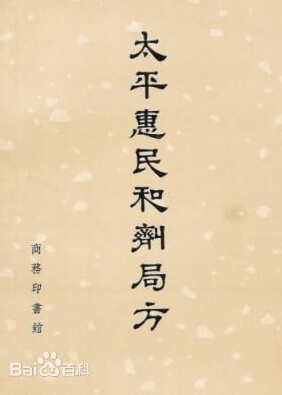 太平惠民和劑局方
商務印書館
Baidu百科